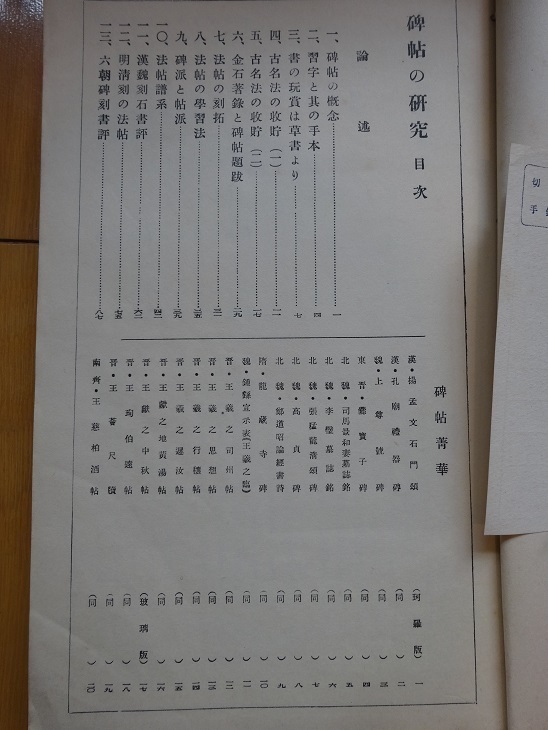 碑帖の研究 目次
論述
一、碑帖の概念 一
二、習字と其の手本 四
三、書の玩賞は草書より 七
四、古名法の收貯(一) 一一
五、古名法の收貯(二) 一七
六、金石著錄と碑帖題跋 二九
七、法帖の刻拓 三二
八、法帖の學習法 三五
九、碑派と帖派 三九
一〇、法帖譜系 四三
一一、漢魏刻石書評 六三
一二、明清刻の法帖 七五
一三、六朝碑刻書評 八七
碑帖菁華
漢・揚孟文石門頌 (珂羅版) 一
漢・孔廟禮器碑 (同) 二
魏・上尊號碑 (同) 三
東晋・爨寶子碑 (同) 四
北魏・司馬景和妻墓誌銘 (同) 五
北魏・李璧墓誌銘 (同) 六
北魏・張猛龍淸頌碑 (同) 七
北魏・高貞碑 (同) 八
北魏・鄭道昭論經書詩 (同) 九
隋・龍藏寺碑 (同) 一〇
魏・鍾繇宣示表(王羲之臨) (同) 一一
晋・王羲之司州帖 (同) 一二
晋・王羲之思想帖 (同) 一三
晋・王羲之行穰帖 (同) 一四
晋・王羲之遲汝帖 (同) 一五
晋・王獻之地黃湯帖 (同) 一六
晋・王獻之中秋帖 (玻璃版) 一七
晋・王珣伯遠帖 (同) 一八
晋・王薈尺牘 (同) 一九
南齊・王慈柏酒帖 (同) 二〇
切
手